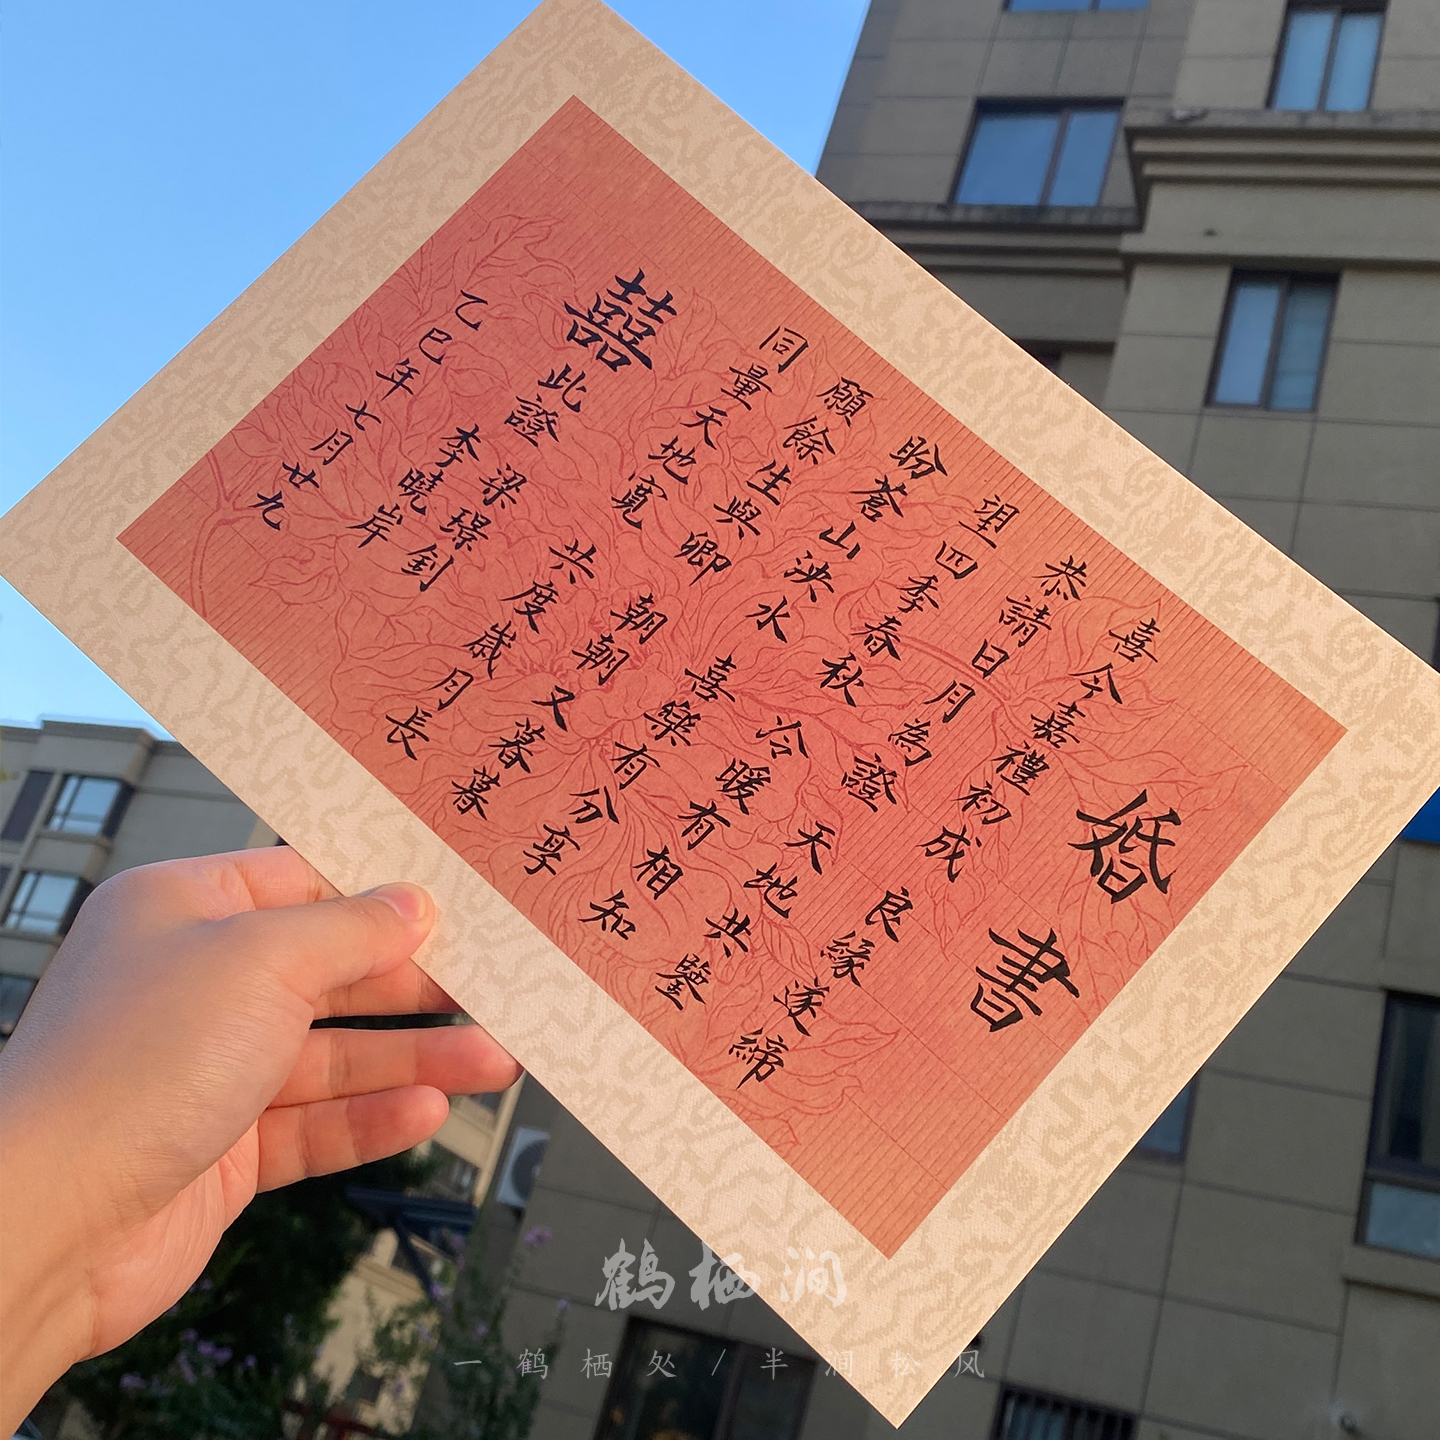 婚書
喜今嘉禮初成 良緣遂締
恭請日月為證 天地共鑒
望四季春秋 冷暖有相知
盼蒼山泱水 喜樂有分享
願餘生與卿 朝朝又暮暮
同量天地寬 共度歲月長
囍
此證
梁璟釗
李曉岸
乙巳年七月廿九
鹤栖涧
一鹤栖处/半涧松风